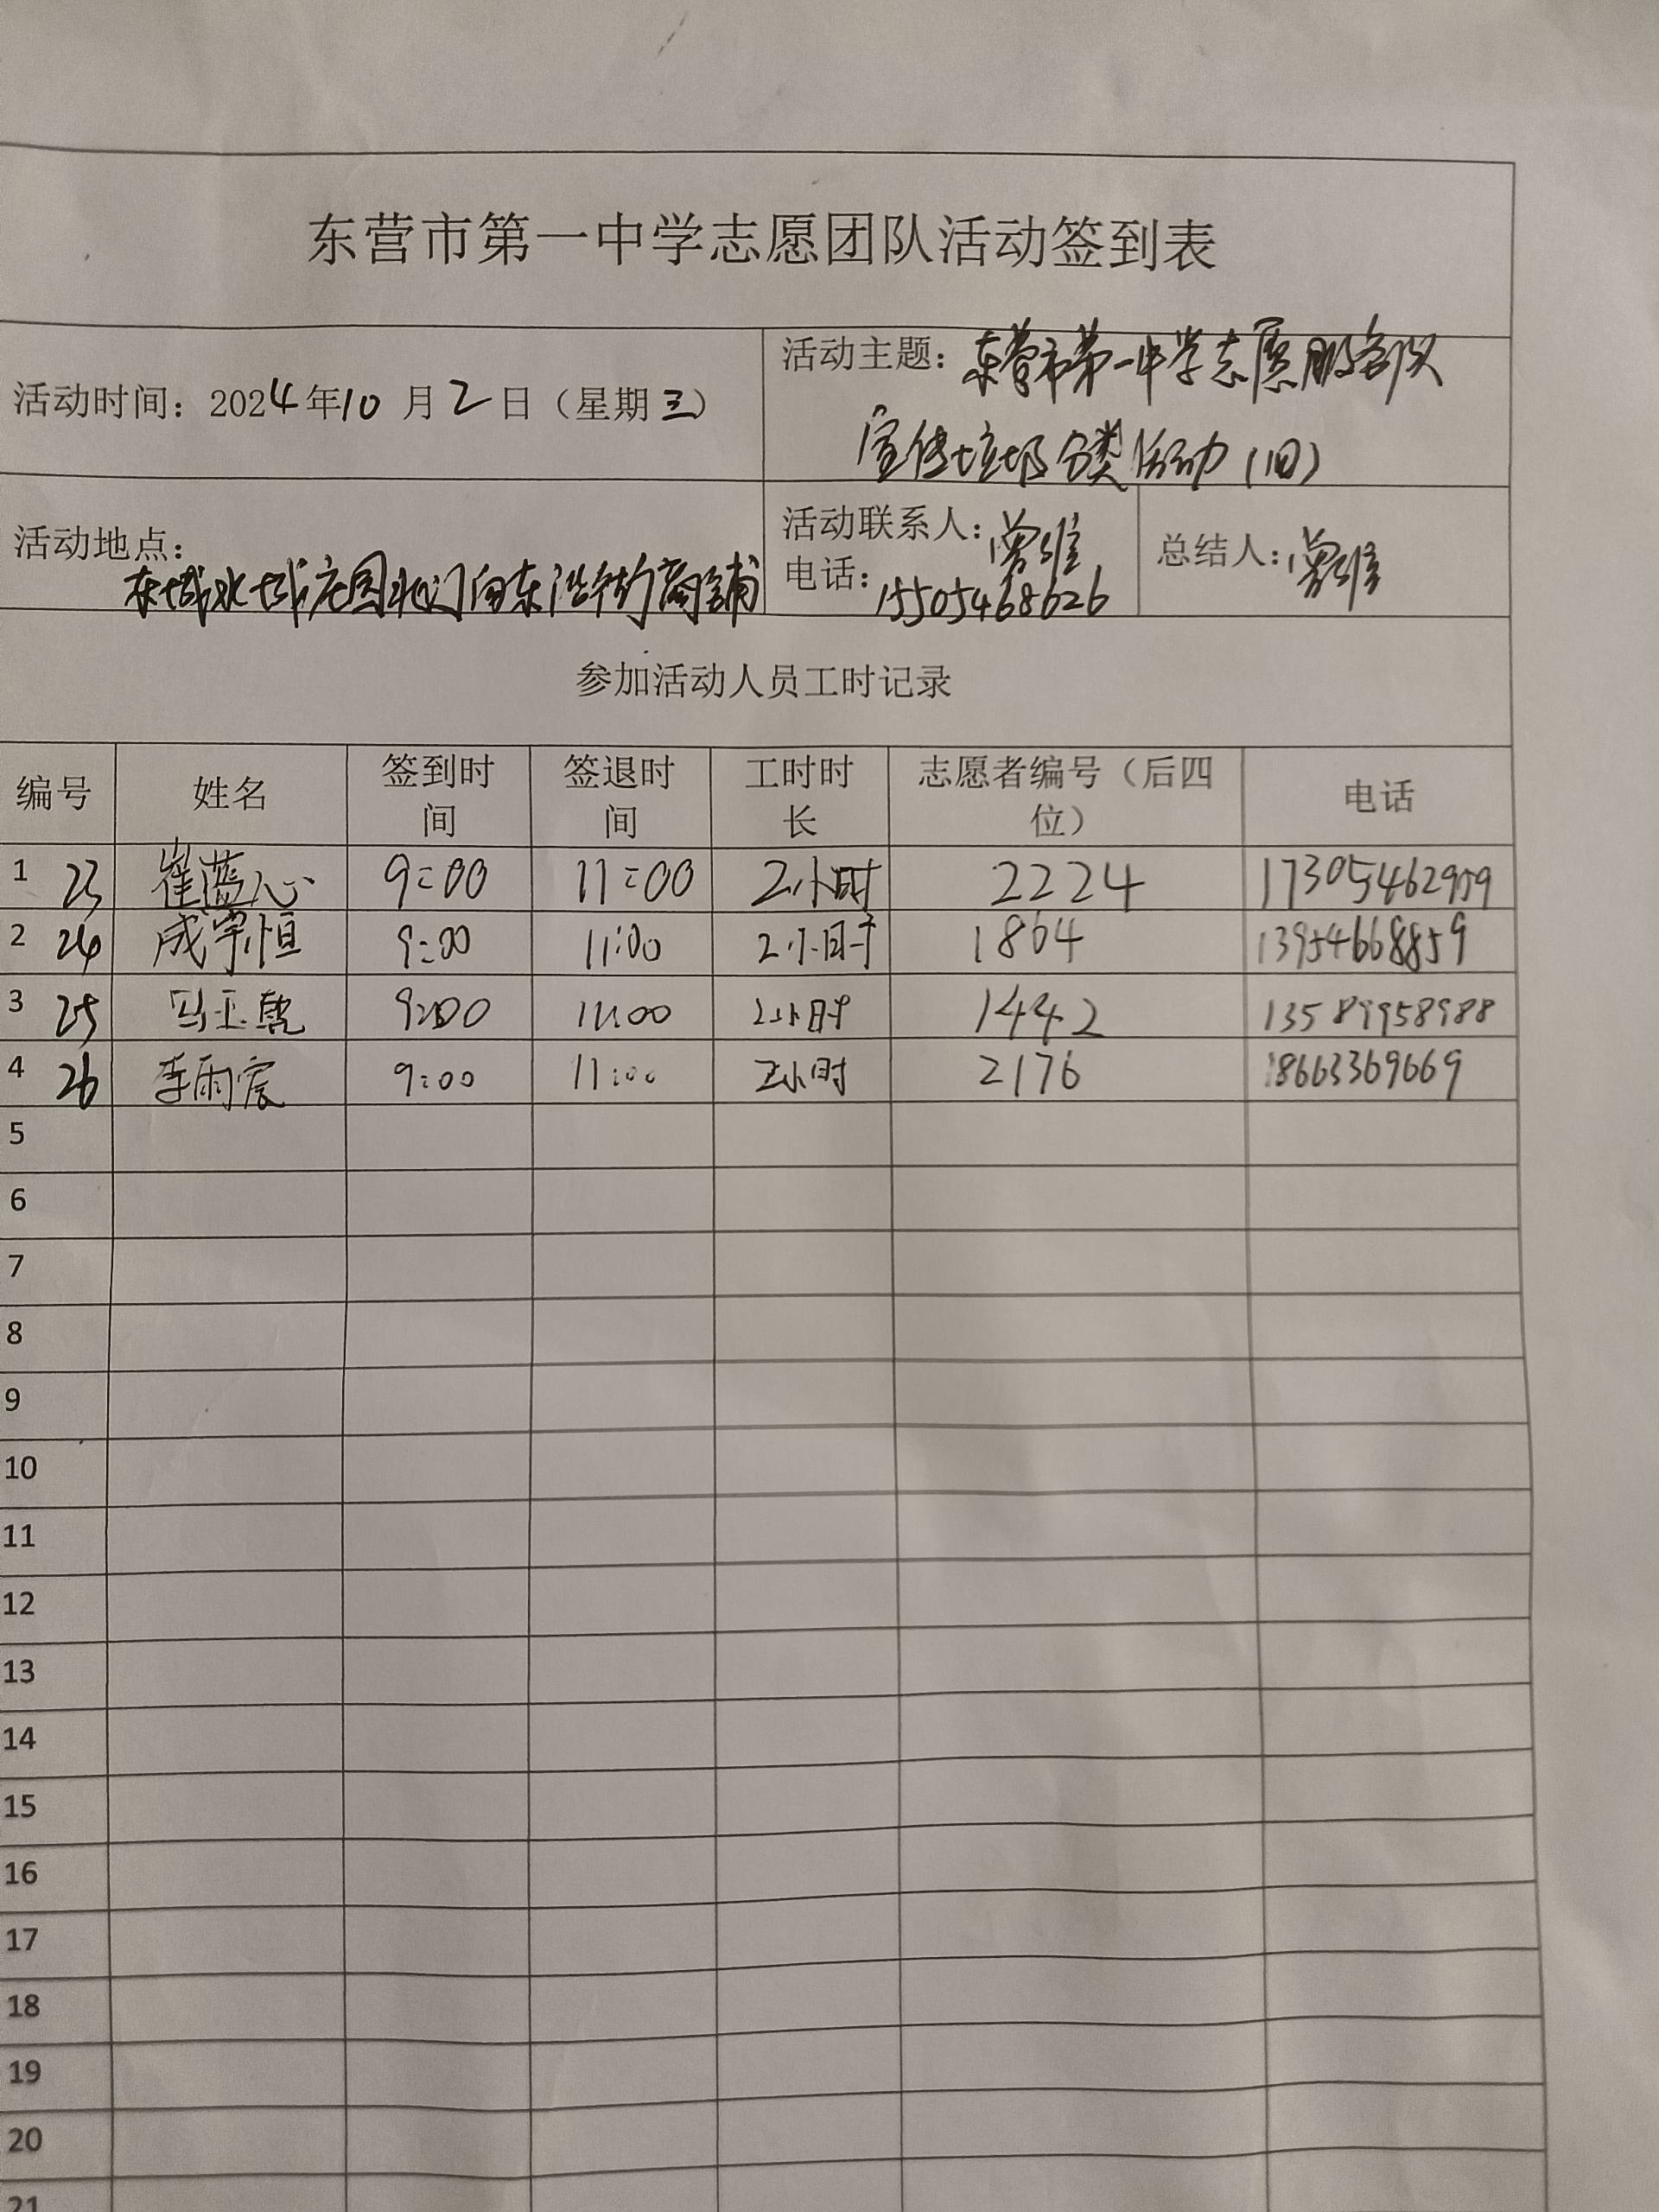 东营市第一中学志愿团队活动签到表
活动时间：2024年10月2日（星期三）
活动主题：东营市第一中学志愿服务队
宣传垃圾分类活动（旧）
活动地点：
东城水城庄园北门向东沿街商铺
活动联系人：曾维
电话：15505468626
总结人：曾维
参加活动人员工时记录
编号 姓名 签到时间 签退时间 工时时长 志愿者编号（后四位） 电话
1 23 崔蓝心 9:00 11:00 2小时 2224 17305462959
2 24 成宇恒 9:00 11:00 2小时 1864 13954668859
3 25 马玉 9:00 11:00 2小时 1442 13589958988
4 26 李雨宸 9:00 11:00 2小时 2176 18663369669
5
6
7
8
9
10
11
12
13
14
15
16
17
18
19
20
21